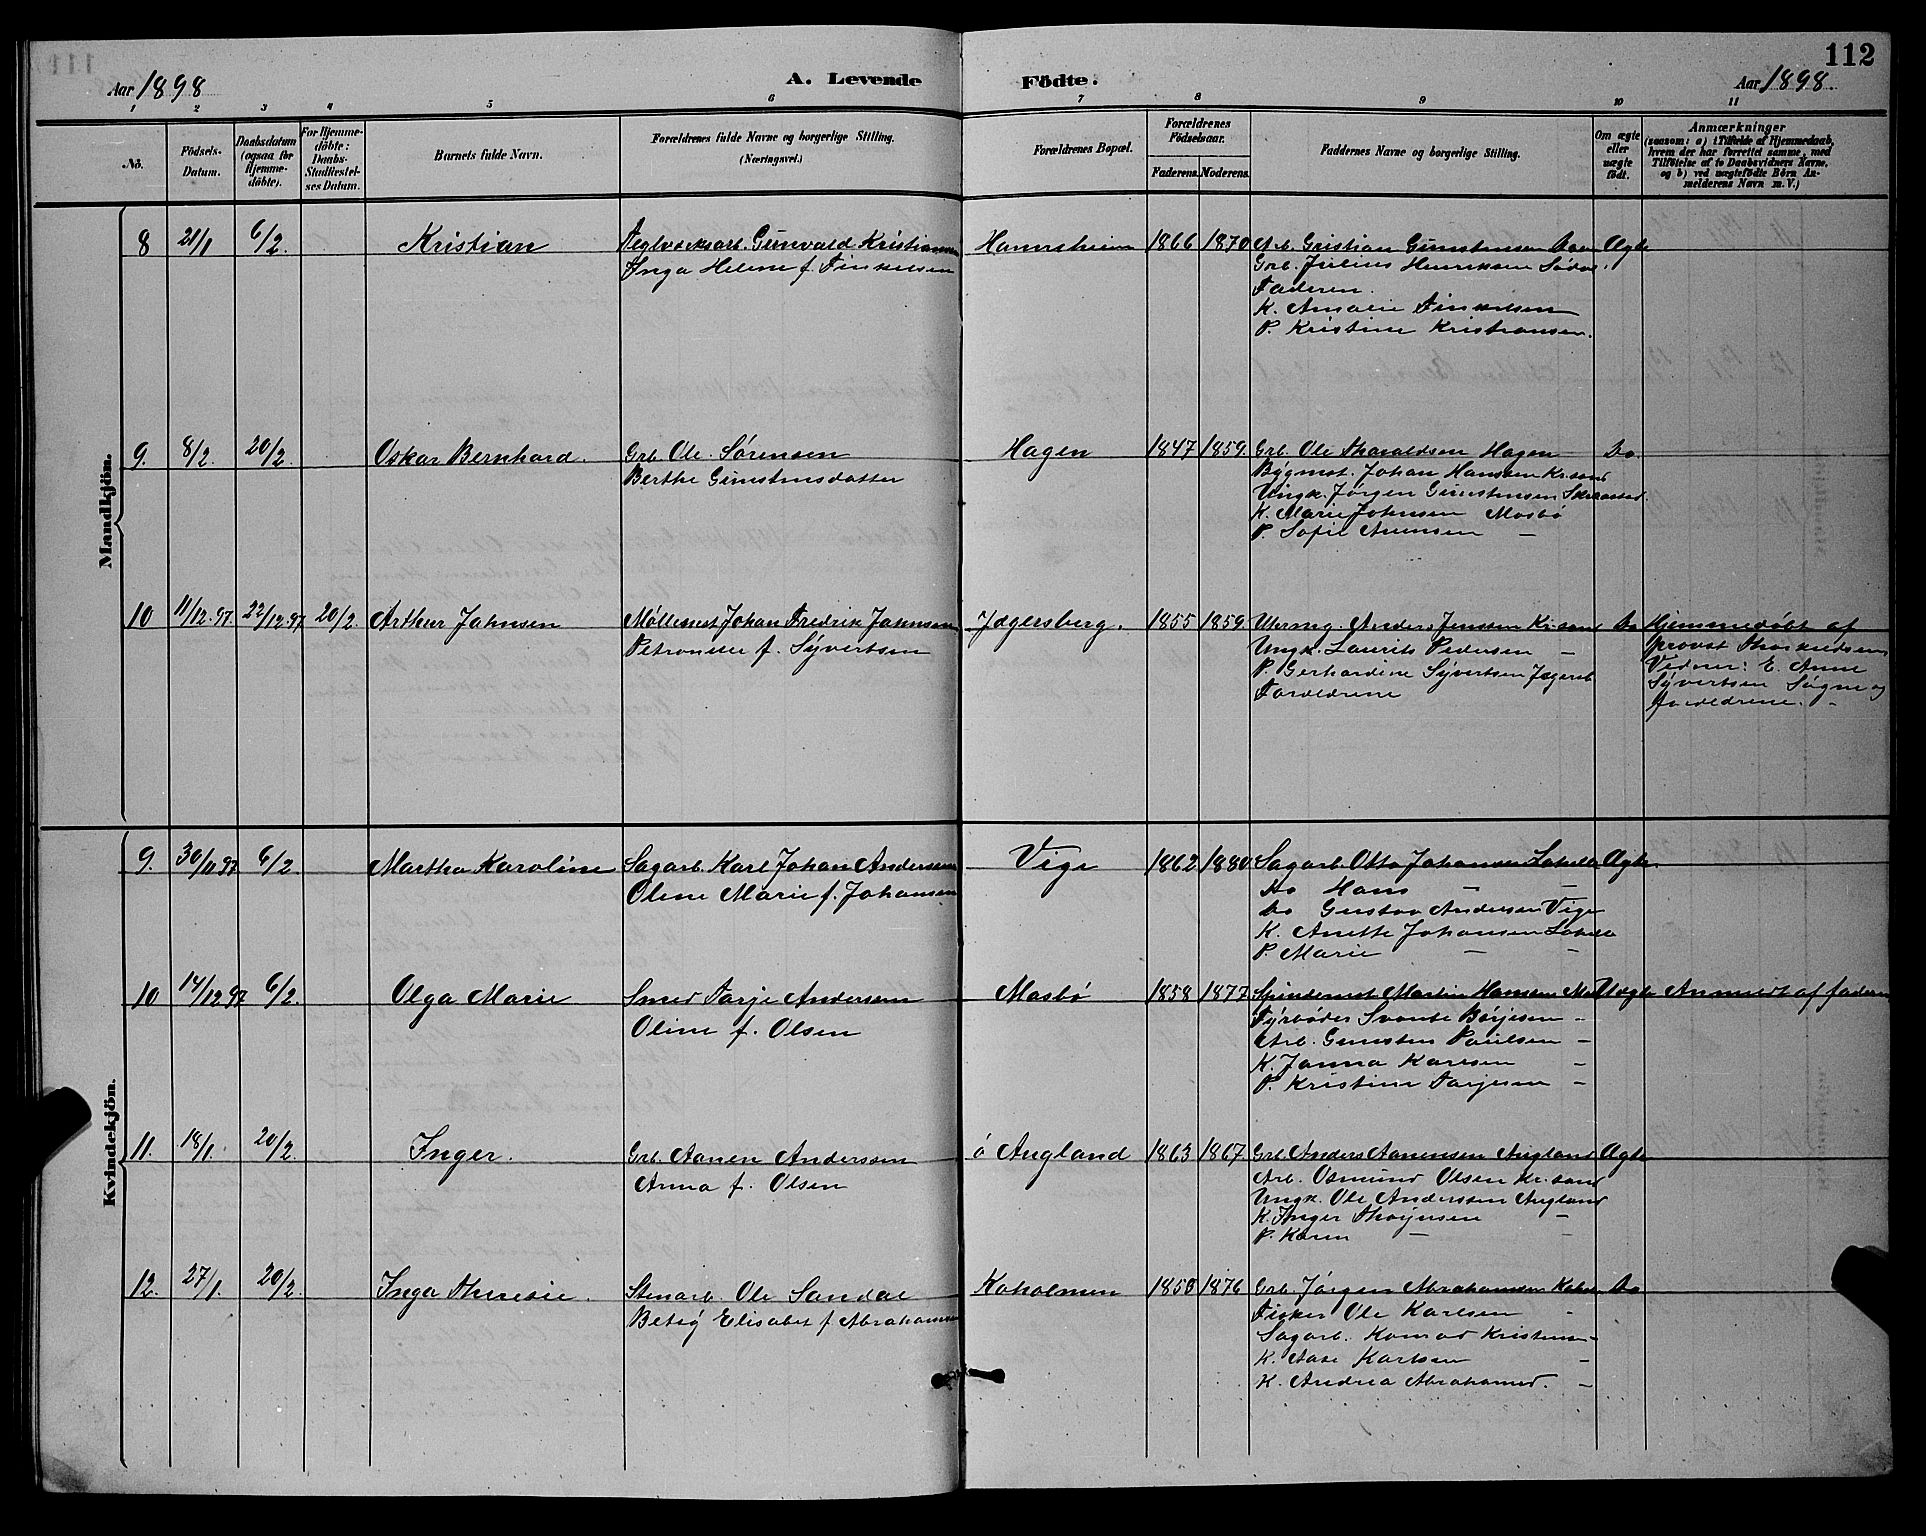 112
Aar 1898
A. Levende Födte.
Aar 1898.
1 2 3 4 5 6 7 8 9 10 11
Nö.
Födsels-Datum.
Daabsdatum (ogsaa for Hjemme-döbte).
For Hjemme-döbte: Daabs-Stadfæstel-ses Datum.
Barnets fulde Navn.
Forældrenes fulde Navne og borgerlige Stilling.
(Næringsvei.)
Forældrenes Bopæl.
Forældrenes Födselsaar.
Faderens. Moderens.
Faddernes Navne og borgerlige Stilling.
Om ægte eller uægte födt.
Anmærkninger
(saasom: a) i Tilfælde af Hjemmedaab, hvem der har forrettet samme, med Tilföielse af to Daabsvidners Navne, og b) ved uægtefödte Börn An-melderens Navn m. V.)
Mandkjön.
8 21/1 6/2. Kristian Teglværksarb. Gunvald Kristiansen Hannsheim 1866 1870 Arb. Gristian Gunstensen Ægte
Inga Helene f. Finkelsen Grb. Julius Henriksen
Faderen.
K. Amalie Finkelsen
P. Kristine Kristiansen.
9. 8/2. 20/2. Oskar Bernhard. Grb. Ole Sørensen Hagen 1847 1859. Grb. Ole Tharaldsen Hagen Do.
Berthe Gunstensdatter Bygmst. Johan Hansen Kr.sand
Ungk. Jørgen Gunstensen
K. Marie Johnsen Mosbø
P. Sofie Arensen –
10 11/12.97. 22/12.97 20/2. Arthur Jahnsen Møllemst Johan Fredrik Jahnsen Jægersberg. 1855 1859 Anders Jensen Kr.sand Do Hjemmedøbt af
Petronelle f. Syvertsen Ungk. Laurits Pedersen – Provst
P. Gerhardine Syvertsen Jægersb Vidner: E. Anne
Forældrene Syvertsen Søgne og
Forældrene. –
Kvindekjön.
9. 30/11 97 6/2 Martha Karoline Sagarb. Karl Johan Andersen Vige 1862 1880 Sagarb. Otto Johansen Ægte.
Oline Marie f. Johansen Do Hans – –
Do Gustav Andersen Vige
K. Anette Johansen
P. Marie – –
10 14/12 97 6/2. Olga Marie Smed Tarje Andersen Mosbø 1858 1877 Spindemst Martin Hansen Uægte Anmeldt af faderen
Oline f. Olsen Fyrbøder Svante Børjesen –
Arb. Gunsten Paulsen –
K. Janna Karlsen –
P. Kristine Tarjesen –
11. 18/1. 20/2. Inger. Grb. Aanen Andersen ø Augland 1863 1867 Grb. Anders Aanensen Augland Ægte
Anna f. Olsen Arb. Osmund Olsen Kr.sand
Ungk. Ole Andersen Augland
K. Inger –
P. Karen – –
12. 27/1. 20/2 Inga Theresie. Stenarb. Ole Sandal Koholmen 1850 1876 Grb. Jørgen Abrahamsen Do
Betsy Elisabet f. Abrahamsen Fisker Ole Karlsen –
Sagarb. Konrad Kristensen –
K. Aase Karlsen –
K. Andrea Abrahamsen. –